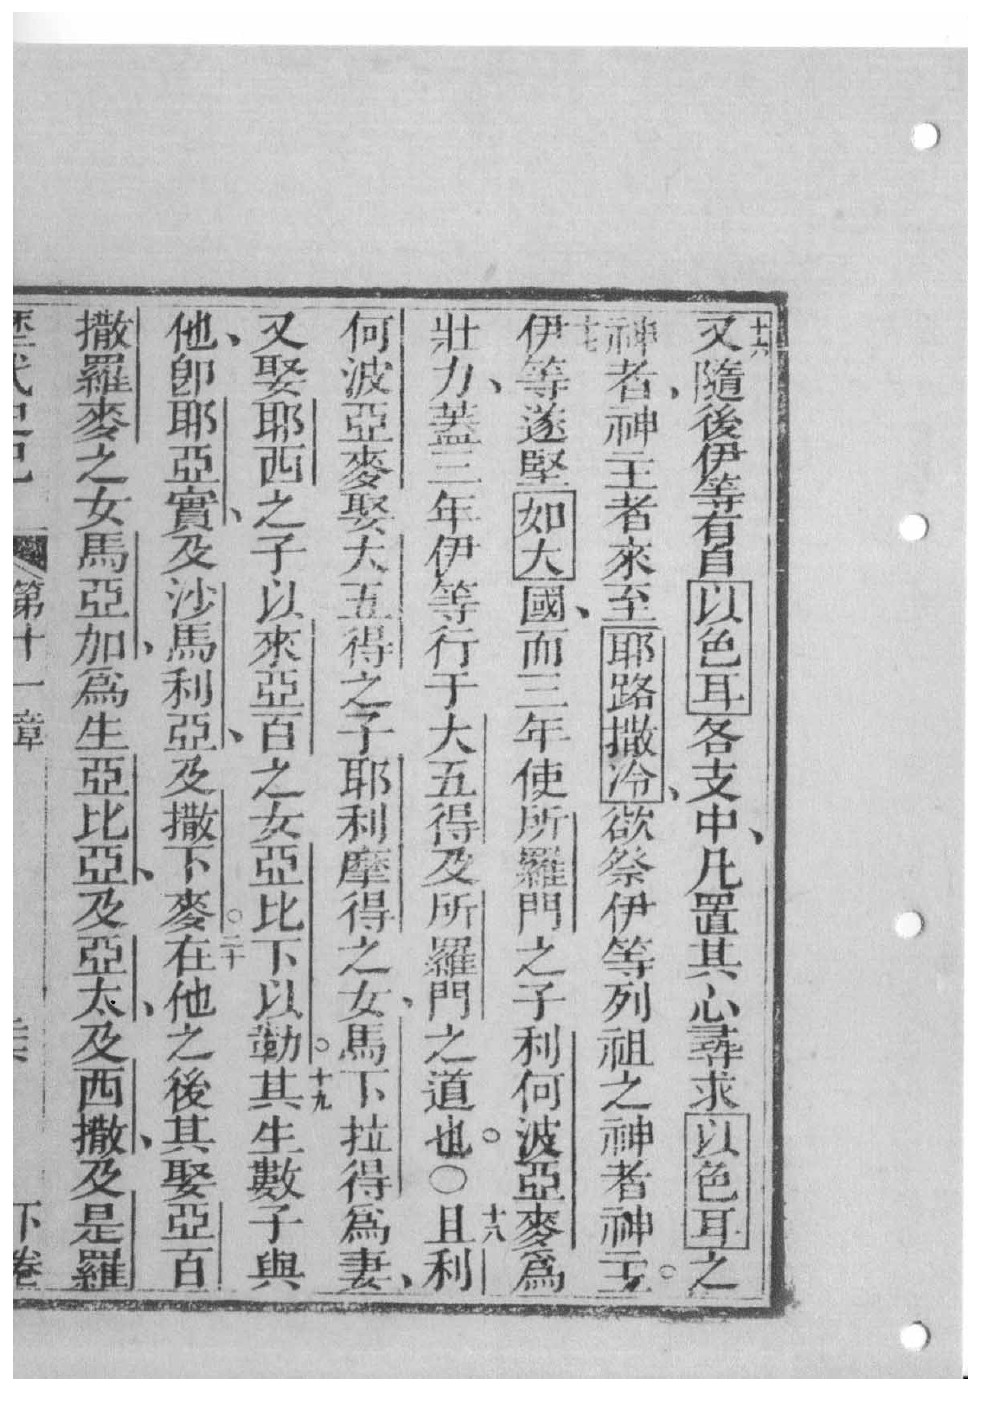 十六又隨後伊等有自以色耳各支中、凡置其心尋求以色耳之
神者、神主者來至耶路撒冷、欲祭伊等列祖之神者神主。
十七伊等遂堅如大國、而三年使所羅門之子利何波亞麥爲
壯力、蓋三年伊等行于大五得及所羅門之道也。○十八且利
何波亞麥娶大五得之子耶利摩得之女、馬下拉得爲妻、
又娶耶西之子以來亞百之女亞比下以勒。十九其生數子與
他、卽耶亞實、及沙馬利亞、及撒下麥。二十在他之後其娶亞百
撒羅麥之女馬亞加、爲生亞比亞、及亞太、及西撒、及是羅
歷代史記 第十一章 下卷